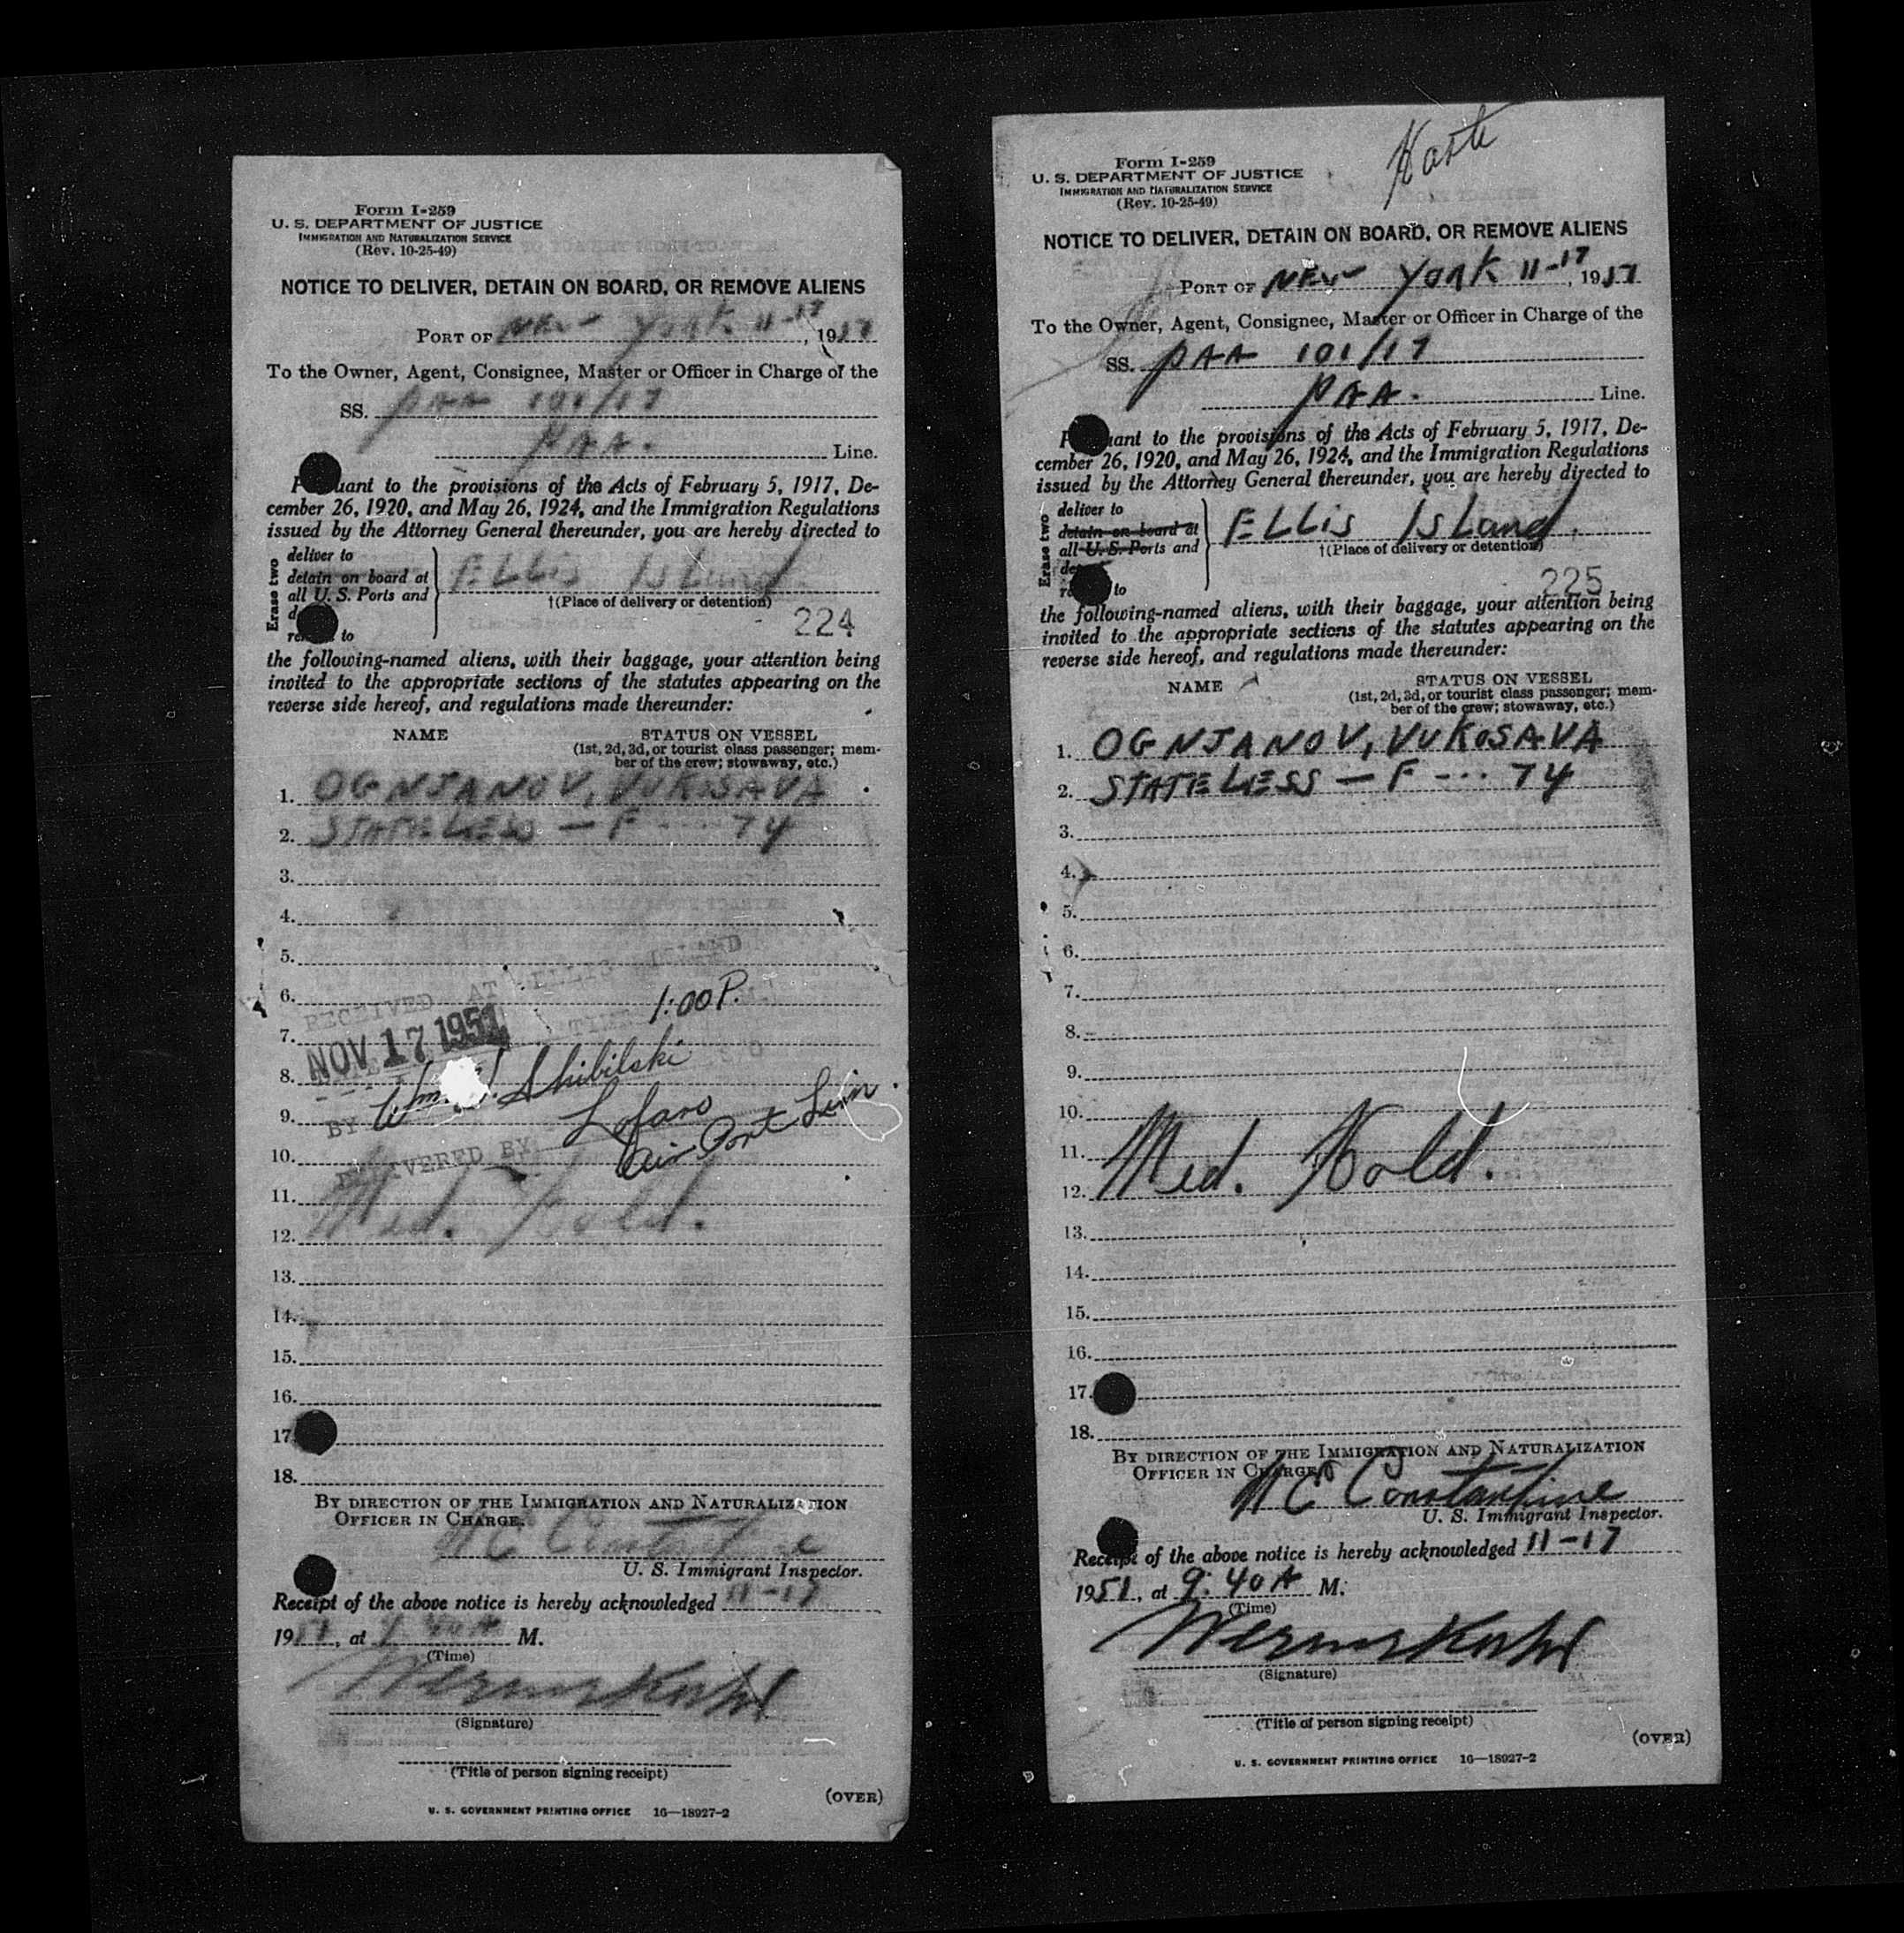 Form I-259
U. S. DEPARTMENT OF JUSTICE
IMMIGRATION AND NATURALIZATION SERVICE
(Rev. 10-25-49)
NOTICE TO DELIVER, DETAIN ON BOARD, OR REMOVE ALIENS
PORT OF NEW YORK 11-17, 1951
To the Owner, Agent, Consignee, Master or Officer in Charge of the
SS. PAA 101/17
PAA. Line.
Pursuant to the provisions of the Acts of February 5, 1917, De-
cember 26, 1920, and May 26, 1924, and the Immigration Regulations
issued by the Attorney General thereunder, you are hereby directed to
Erase two
deliver to
detain on board at
all U. S. Ports and
to
ELLIS ISLand.
†(Place of delivery or detention)
224
the following-named aliens, with their baggage, your attention being
invited to the appropriate sections of the statutes appearing on the
reverse side hereof, and regulations made thereunder:
NAME STATUS ON VESSEL
(1st, 2d, 3d, or tourist class passenger; mem-
ber of the crew; stowaway, etc.)
1. OGNJANOV, VUKOSAVA
2. STATELESS — F --- 74
3.
4.
5.
RECEIVED AT ELLIS ISLAND
6. 1:00 P.
7. NOV 17 1951 TIME
8. Wm. Shibilski
9. BY Lofaro
Air Port Lim.
10. DELIVERED BY
11. Med. Hold.
12.
13.
14.
15.
16.
17.
18.
BY DIRECTION OF THE IMMIGRATION AND NATURALIZATION
OFFICER IN CHARGE.
N C Constantine
U. S. Immigrant Inspector.
Receipt of the above notice is hereby acknowledged 11-17
1951, at 9:40 A M.
(Time)
(Signature)
(Title of person signing receipt)
(OVER)
U. S. GOVERNMENT PRINTING OFFICE 16—18927-2
Form I-259
U. S. DEPARTMENT OF JUSTICE
IMMIGRATION AND NATURALIZATION SERVICE
(Rev. 10-25-49)
NOTICE TO DELIVER, DETAIN ON BOARD, OR REMOVE ALIENS
PORT OF NEW YORK 11-17, 1951
To the Owner, Agent, Consignee, Master or Officer in Charge of the
SS. PAA 101/17
PAA. Line.
Pursuant to the provisions of the Acts of February 5, 1917, De-
cember 26, 1920, and May 26, 1924, and the Immigration Regulations
issued by the Attorney General thereunder, you are hereby directed to
Erase two
deliver to
detain on board at
all U. S. Ports and
to
ELLIS ISLand.
†(Place of delivery or detention)
225
the following-named aliens, with their baggage, your attention being
invited to the appropriate sections of the statutes appearing on the
reverse side hereof, and regulations made thereunder:
NAME STATUS ON VESSEL
(1st, 2d, 3d, or tourist class passenger; mem-
ber of the crew; stowaway, etc.)
1. OGNJANOV, VUKOSAVA
2. STATELESS — F --- 74
3.
4.
5.
6.
7.
8.
9.
10.
11. Med. Hold.
12.
13.
14.
15.
16.
17.
18.
BY DIRECTION OF THE IMMIGRATION AND NATURALIZATION
OFFICER IN CHARGE.
N C Constantine
U. S. Immigrant Inspector.
Receipt of the above notice is hereby acknowledged 11-17
1951, at 9:40 A M.
(Time)
(Signature)
(Title of person signing receipt)
(OVER)
U. S. GOVERNMENT PRINTING OFFICE 16—18927-2